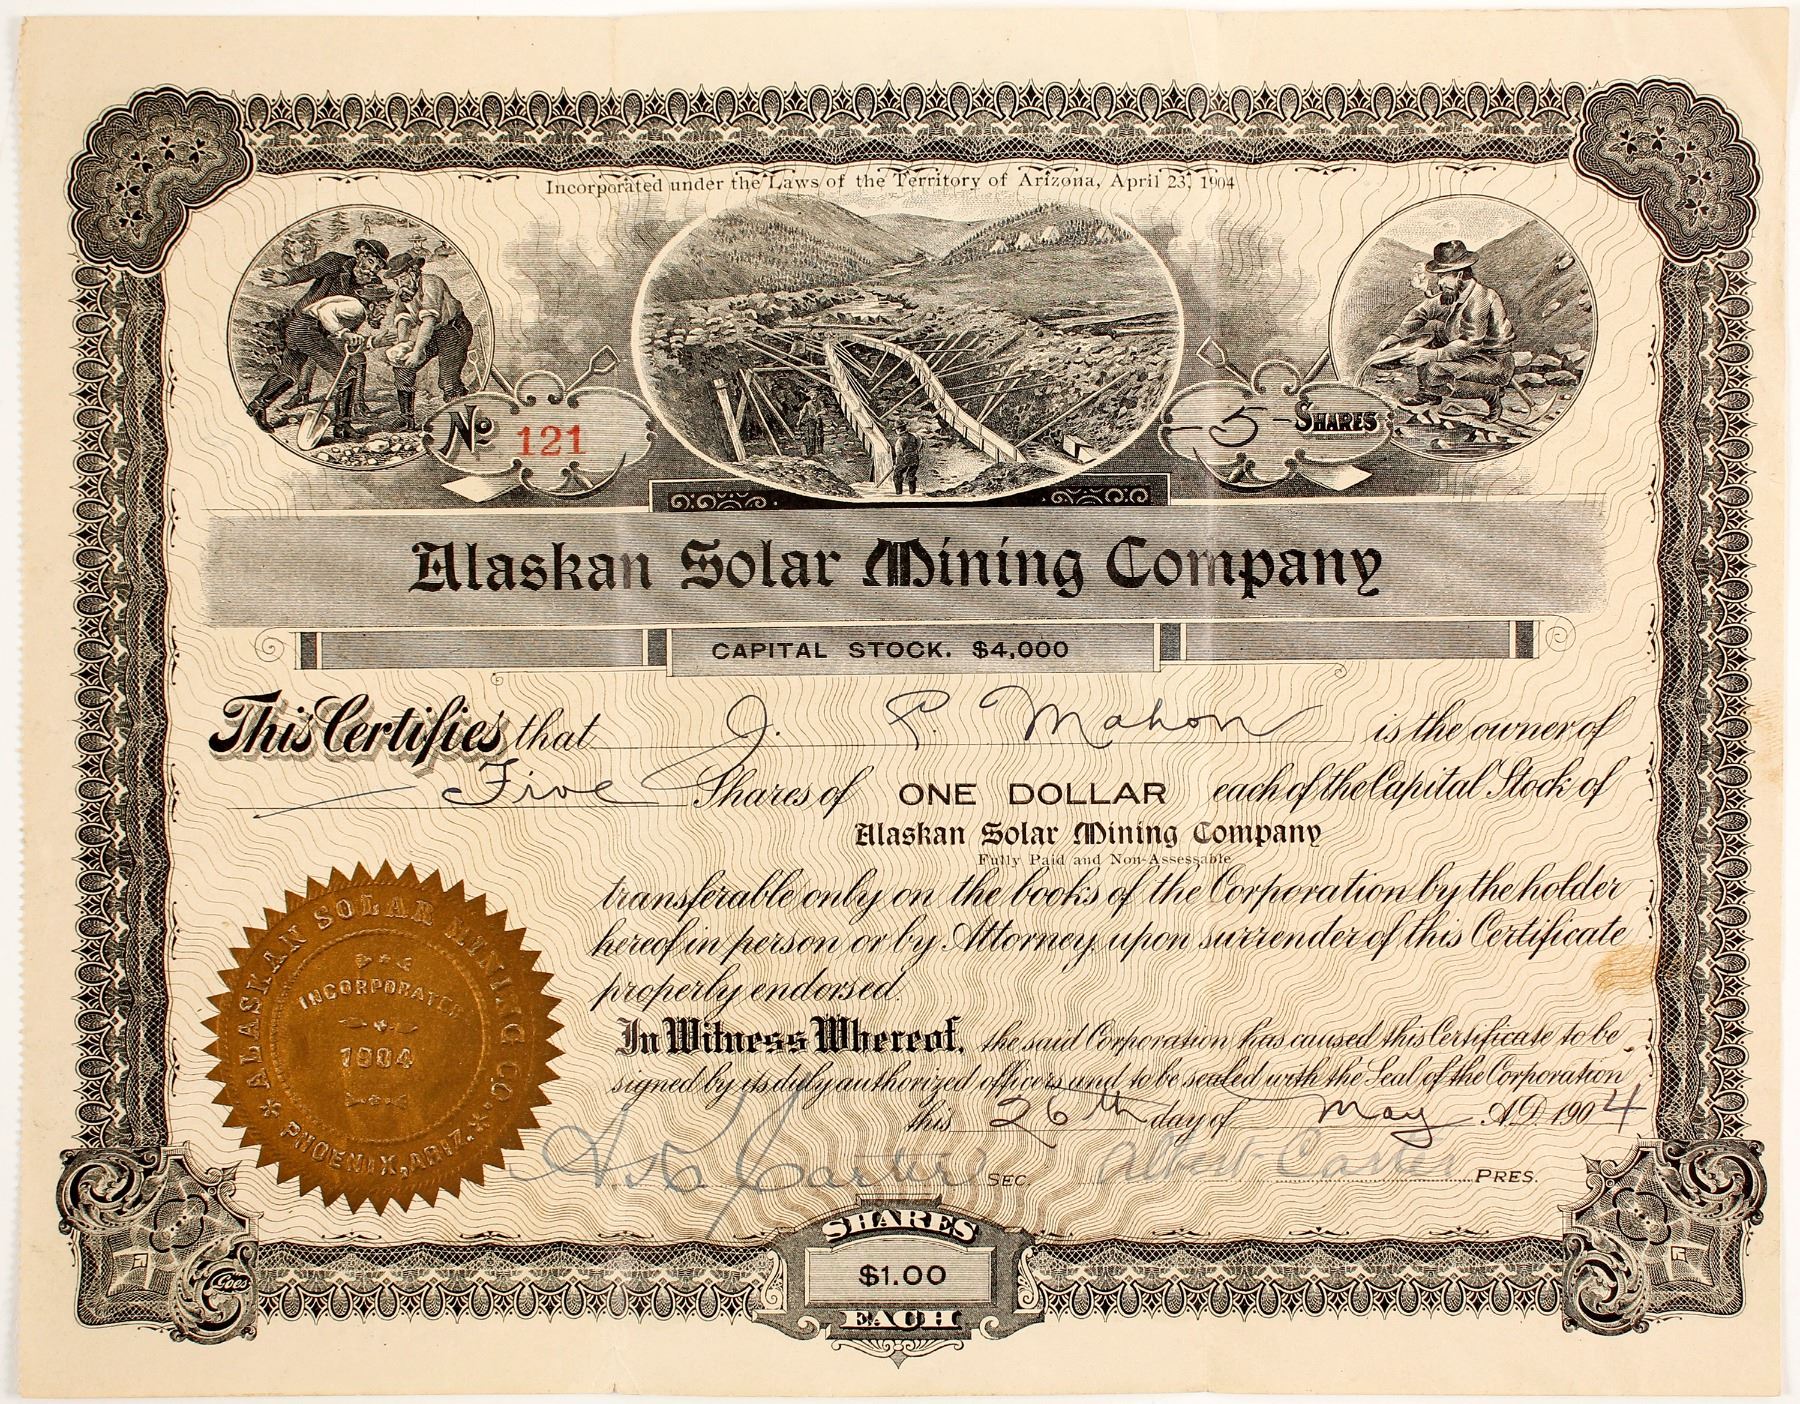 Incorporated under the Laws of the Territory of Arizona, April 23, 1904
No 121
-5- SHARES
Alaskan Solar Mining Company
CAPITAL STOCK. $4,000
This Certifies that J. P. Mahon is the owner of
Five Shares of ONE DOLLAR each of the Capital Stock of
Alaskan Solar Mining Company
Fully Paid and Non-Assessable
transferable only on the books of the Corporation by the holder
hereof in person or by Attorney upon surrender of this Certificate
properly endorsed.
In Witness Whereof, the said Corporation has caused this Certificate to be
signed by its duly authorized officers and to be sealed with the Seal of the Corporation
this 26th day of May A.D. 1904
SEC. PRES.
ALASKAN SOLAR MINING CO.
INCORPORATED
1904
* PHOENIX, ARIZ. *
SHARES
$1.00
EACH
Goes